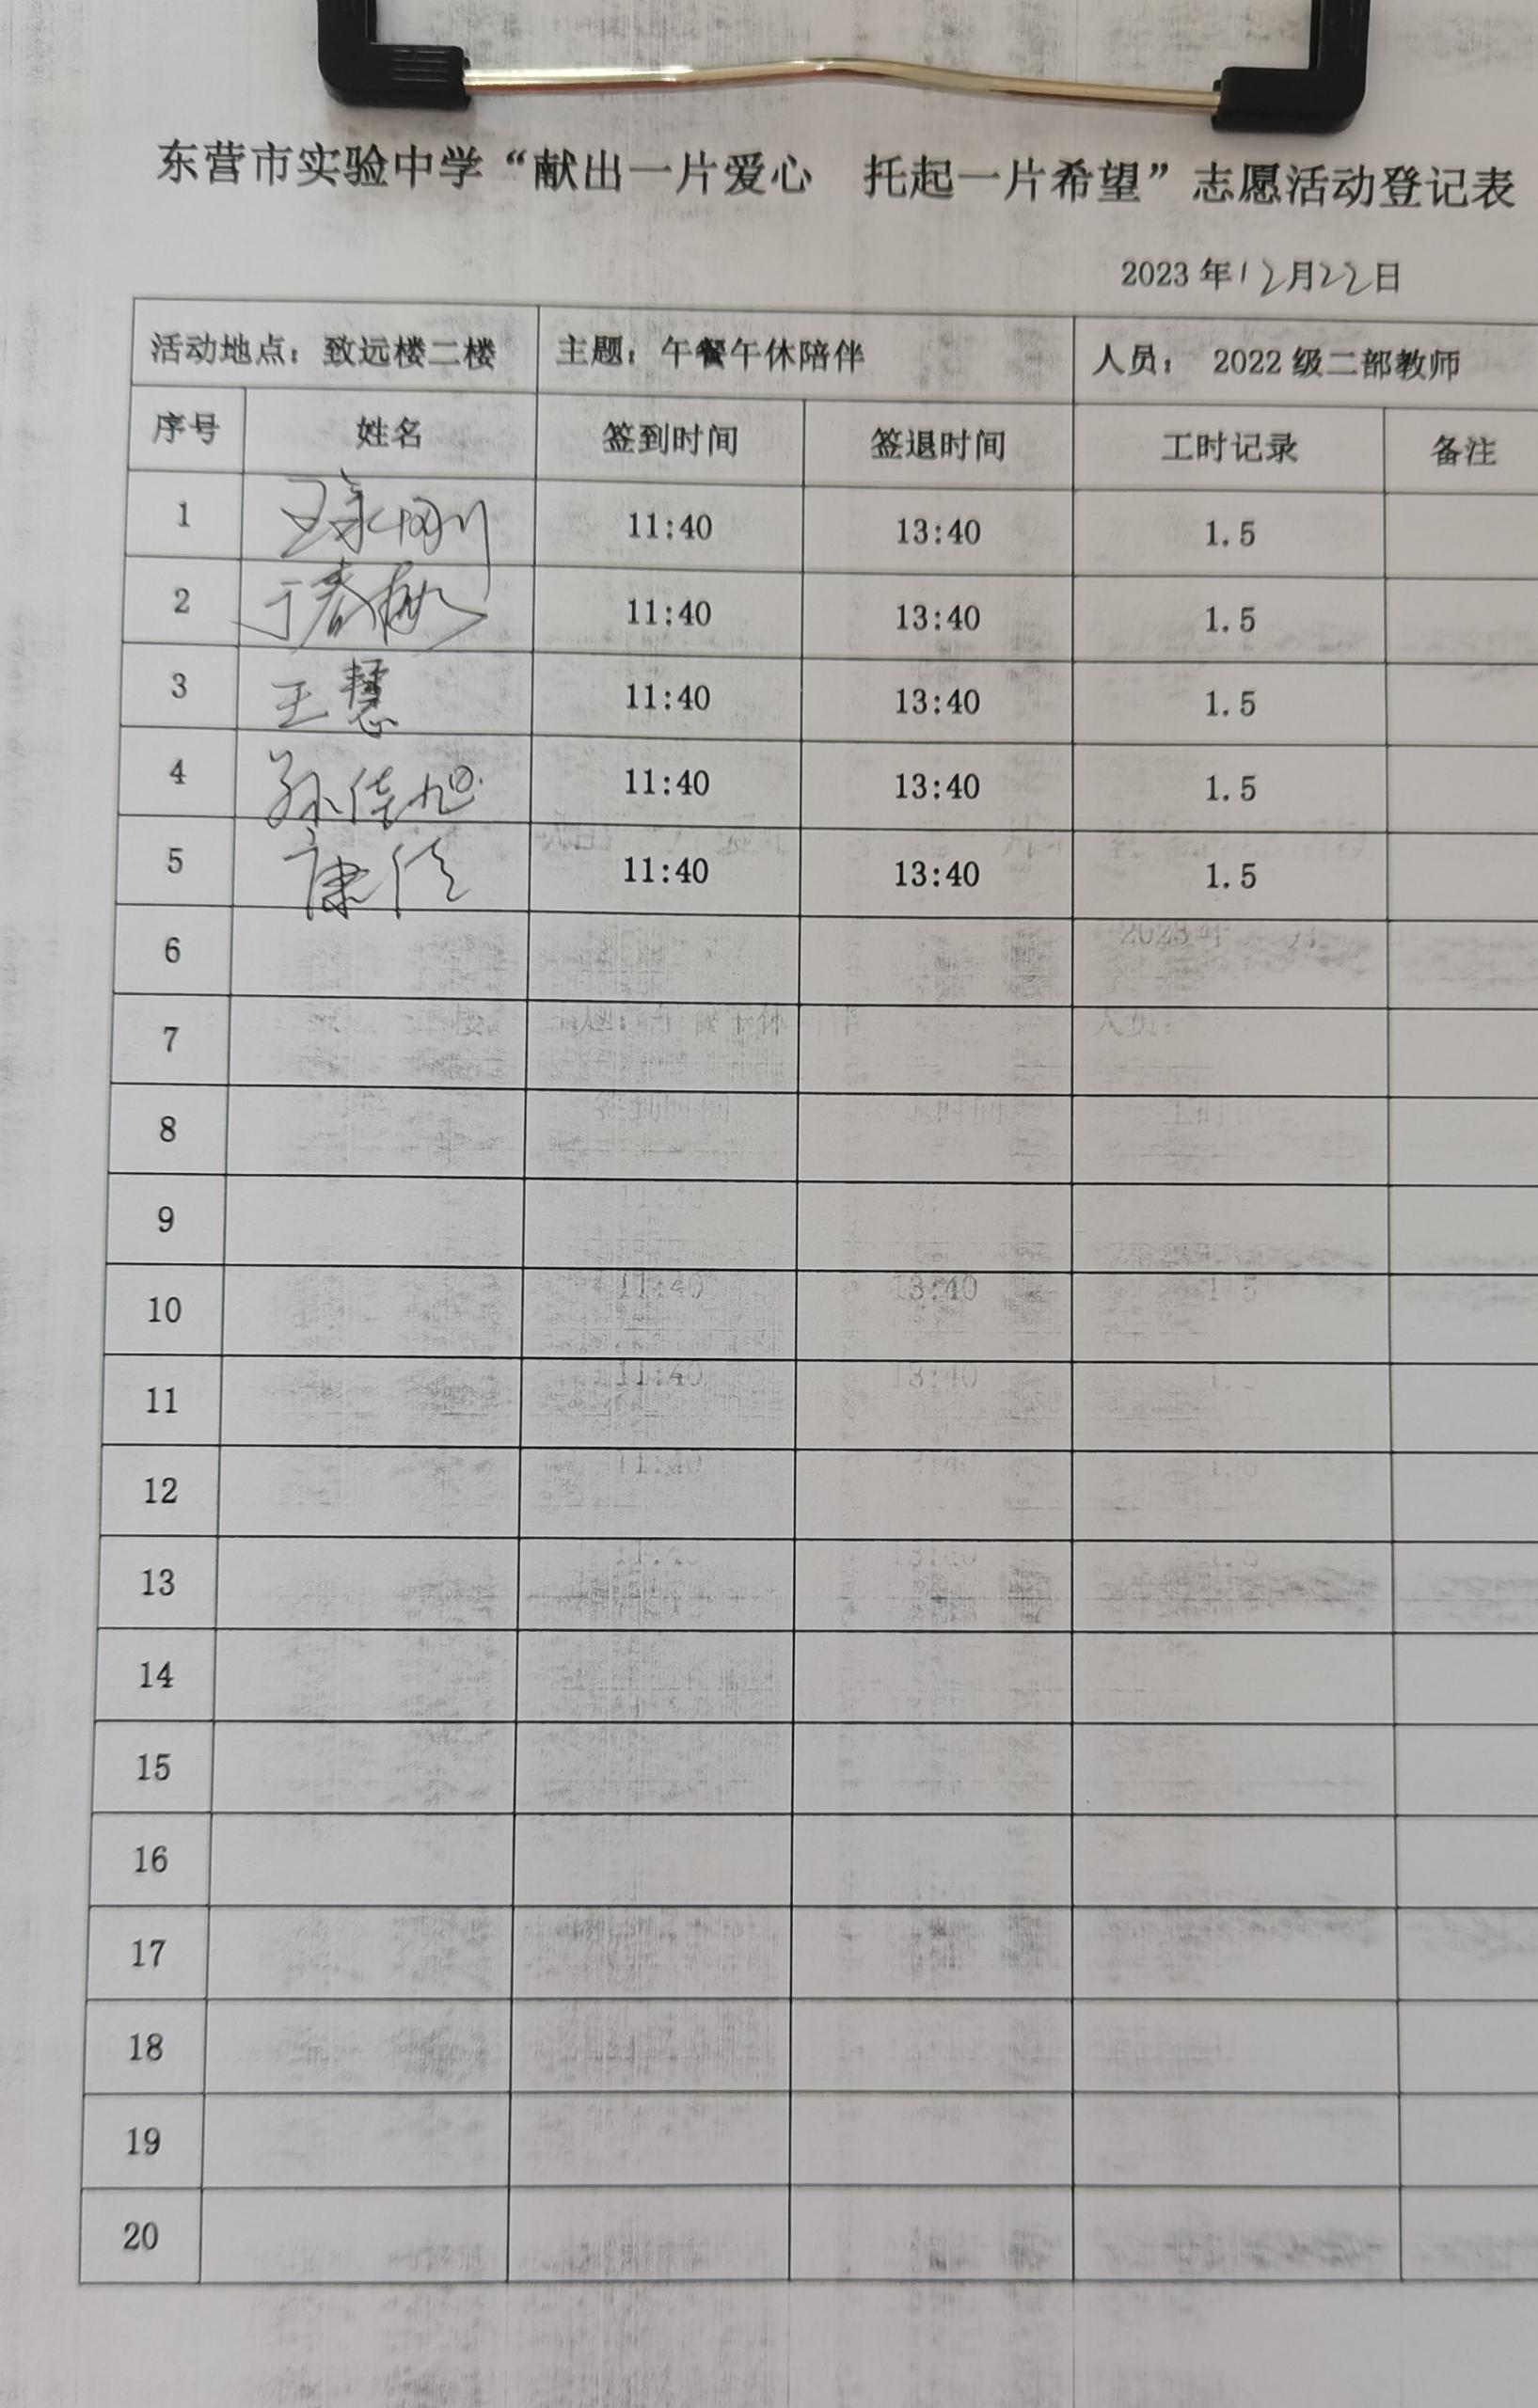 东营市实验中学“献出一片爱心 托起一片希望”志愿活动登记表
2023年12月22日
活动地点：致远楼二楼 主题：午餐午休陪伴 人员： 2022级二部教师
序号 姓名 签到时间 签退时间 工时记录 备注
1 11:40 13:40 1.5
2 于春梅 11:40 13:40 1.5
3 王慧 11:40 13:40 1.5
4 孙佳旭 11:40 13:40 1.5
5 康佳 11:40 13:40 1.5
6
7
8
9
10
11
12
13
14
15
16
17
18
19
20